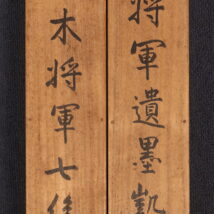 将軍遺墨凱
木将軍七絶